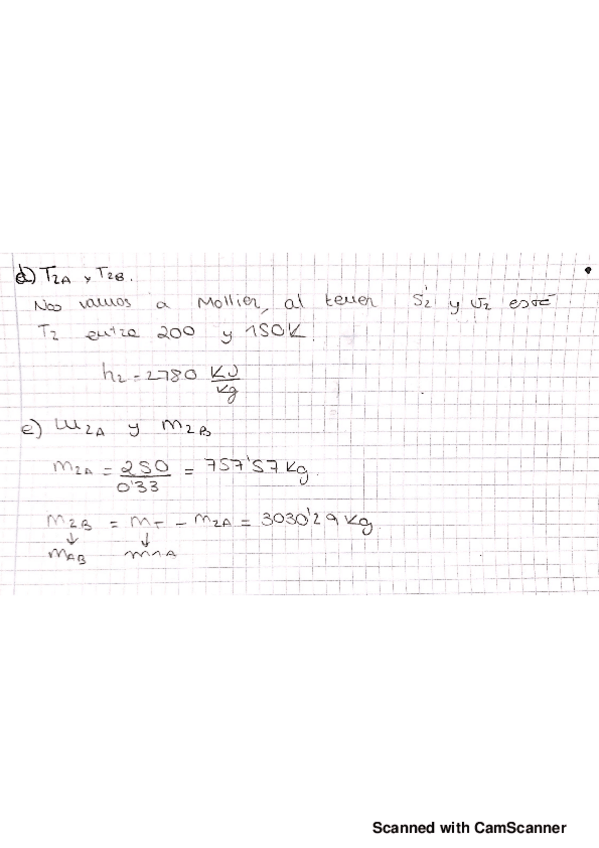 d) T2A y T2B.
Nos vamos a Mollier, al tener S2 y v2 esté
T2 entre 200 y 150K.
h2 = 2780 KJ/kg
e) m2A y m2B
m2A = 250/0'33 = 757'57 kg.
m2B = mT - m2A = 3030'29 kg.
↓ ↓
mAB m1A
Scanned with CamScanner